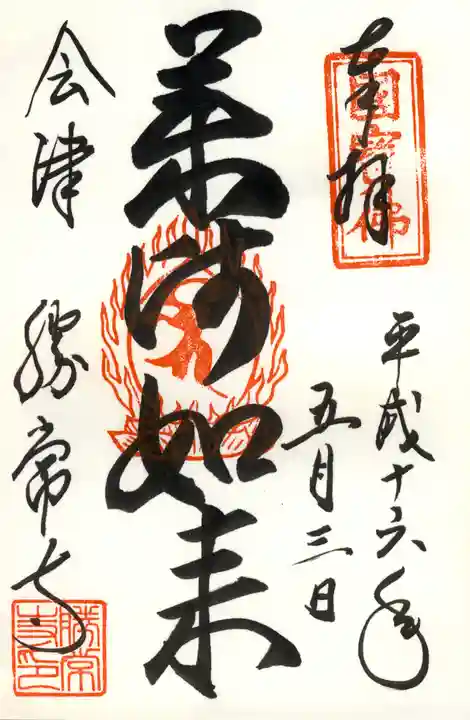 奉拝
国宝佛
平成十六年
五月三日
薬師如来
会津
勝常寺
勝常寺印